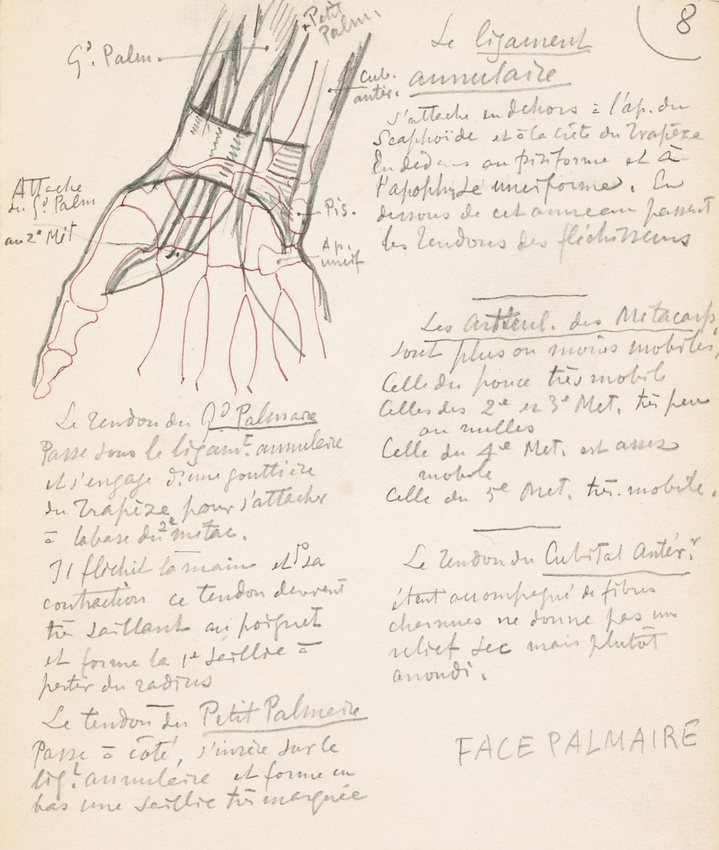 8
Gd Palm.
Petit
Palm.
Cub.
antér.
Attache
du Gd Palm
au 2e Mét
Pis.
Ap.
uncif
Le tendon du Gd Palmaire
Passe sous le ligamt. annulaire
et s'engage d'une gouttière
du Trapèze pour s'attacher
à la base du 2e métac.
Il fléchit la main et Ps sa
contraction ce tendon devient
très saillant au poignet
et forme la 1e saillie à
partir du radius
Le tendon du Petit Palmaire
Passe à côté, s'insère sur le
ligt. annulaire et forme en
bas une saillie très marquée
Le ligament
annulaire
s'attache en dehors à l'ap. du
Scaphoïde et à la crête du Trapèze
En dedans au pisiforme et à
l'apophyse unciforme. En
dessous de cet anneau passent
les tendons des fléchisseurs
Les Articul. des Metacarp.
sont plus ou moins mobiles,
Celle du pouce très mobile
Celles des 2e et 3e Met. très peu
ou nulles
Celle du 4e Met. est assez
mobile
Celle du 5e Met. très. mobile.
Le tendon du Cubital Antér.r
étant accompagné de fibres
charnues ne donne pas un
relief sec mais plutôt
arrondi.
FACE PALMAIRE